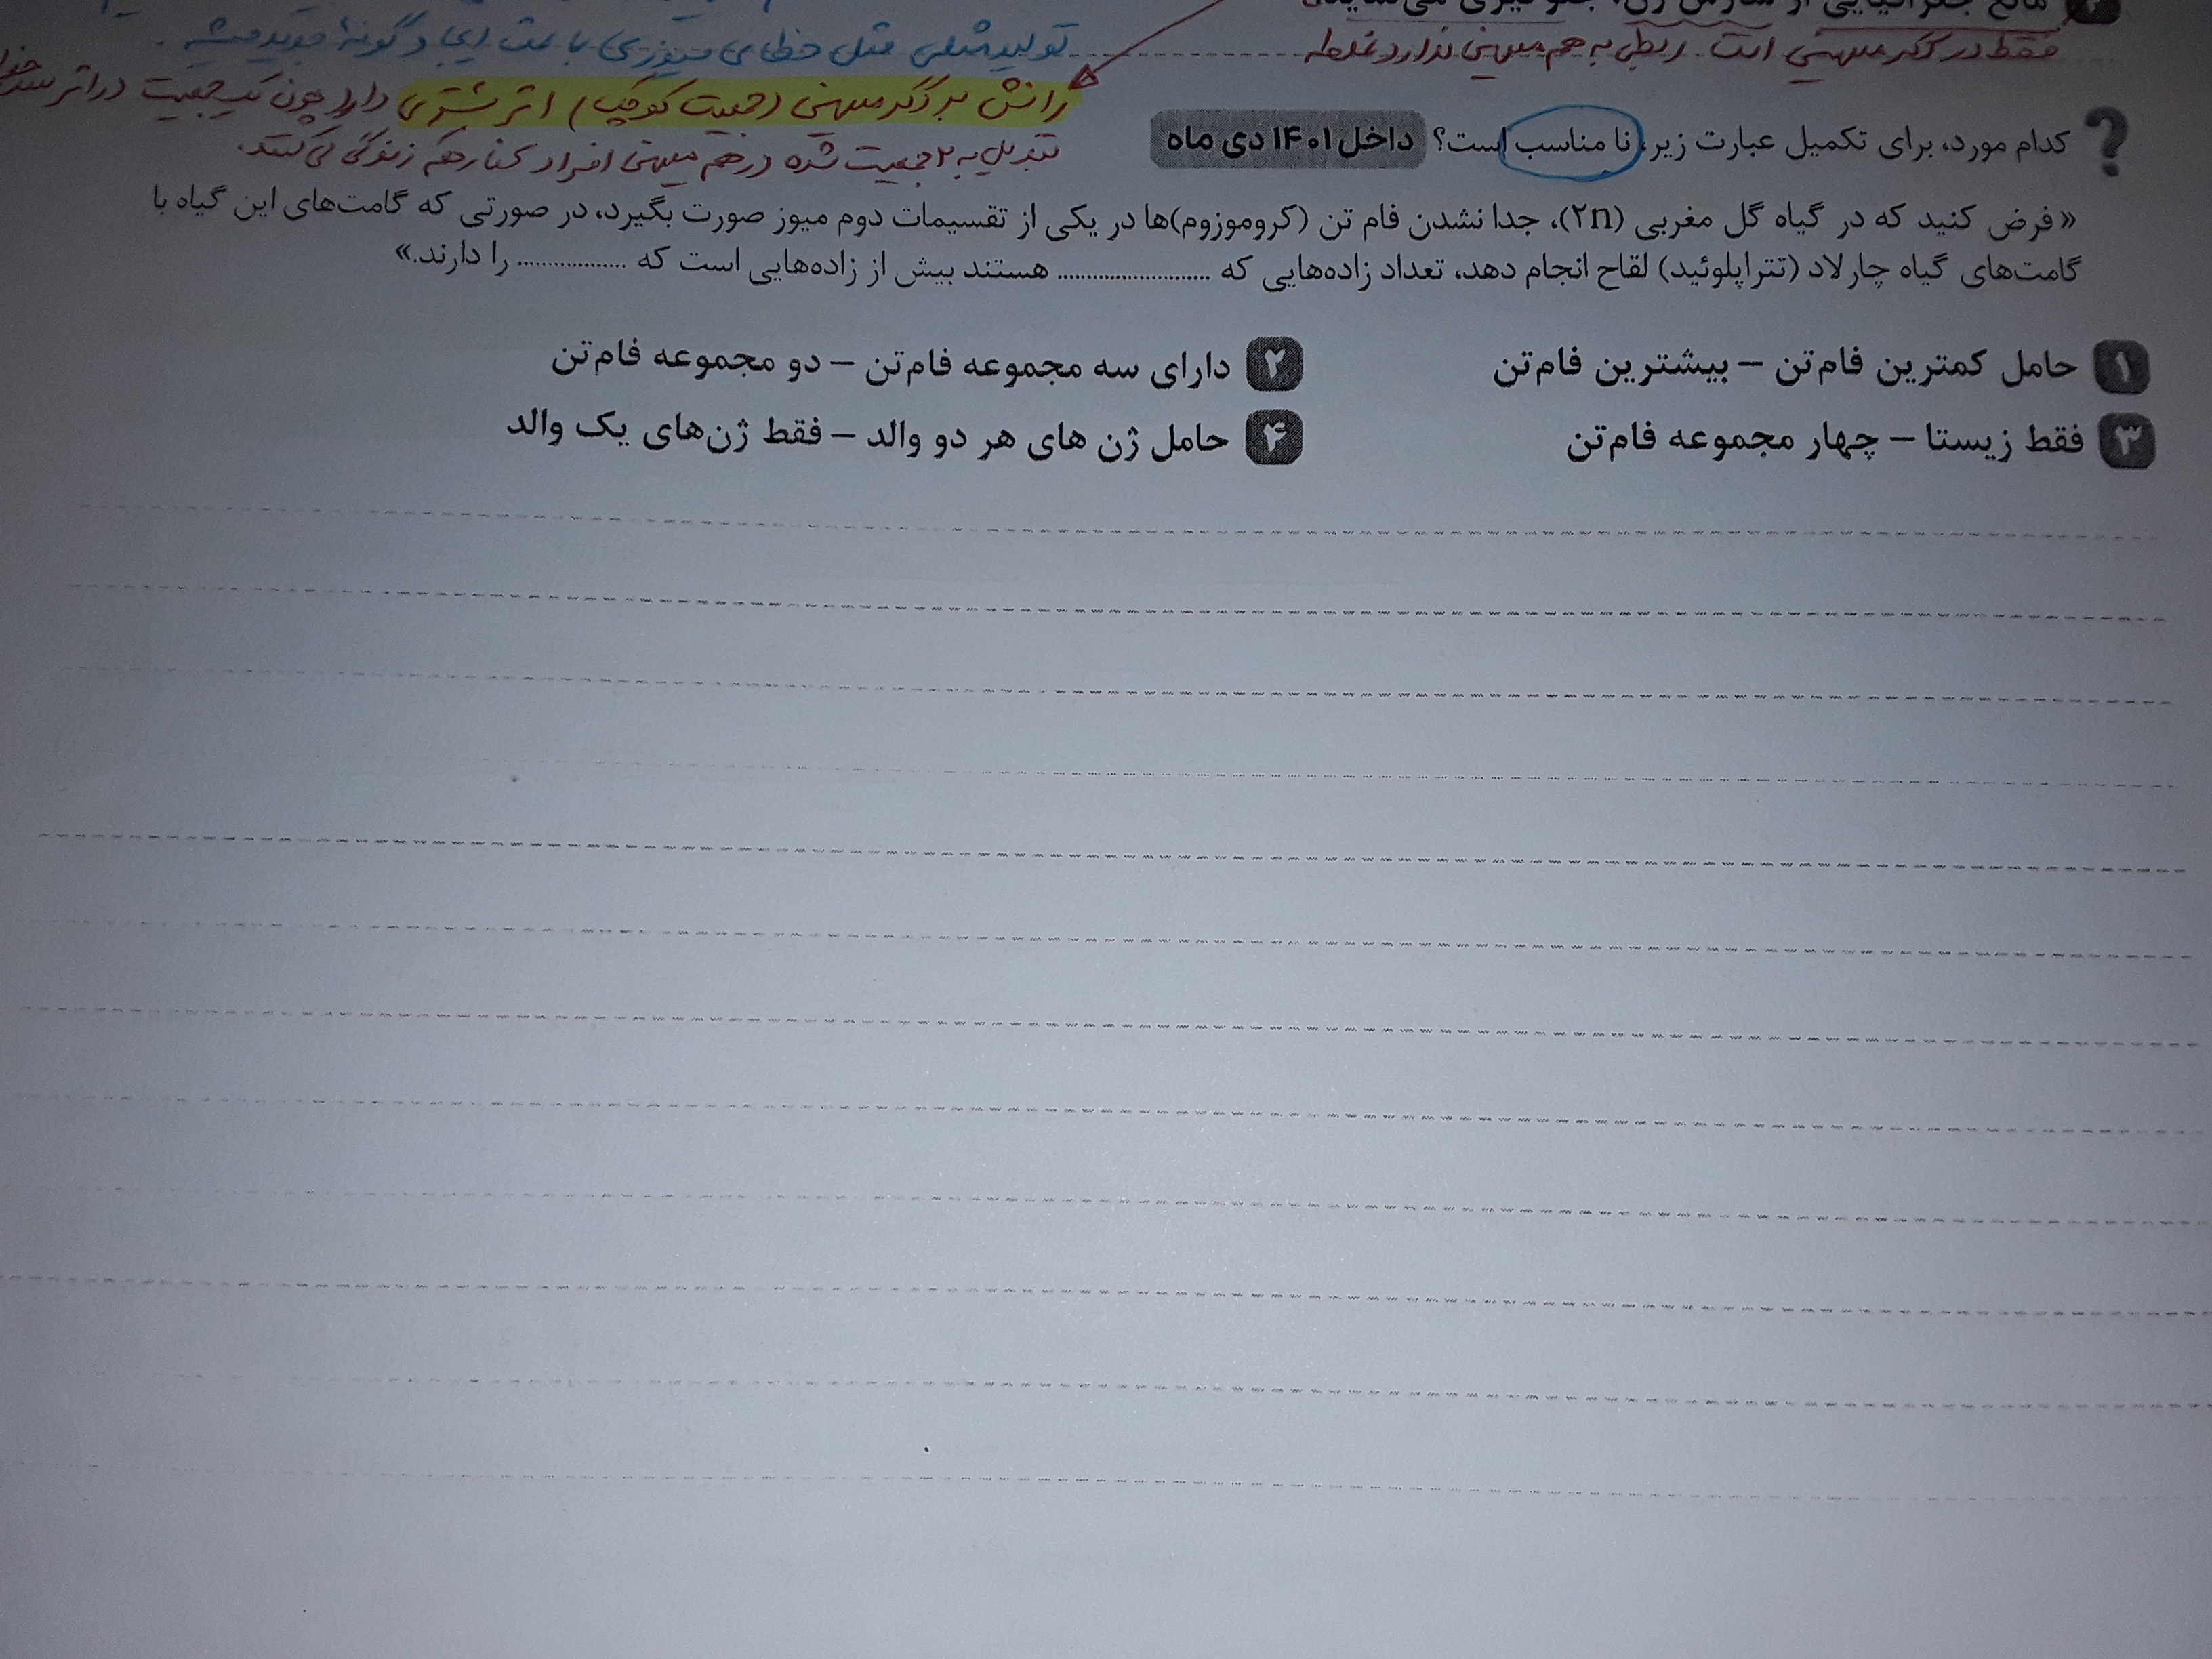 مانع جغرافیایی از شارش ژن، جلوگیری می‌نماید.
فقط در دگر میهنی است ربطی به هم میهنی ندارد غلطه
تولیدمثلی مثل خطای میوزی باعث ایجاد گونهٔ جدید میشه.
رانش در دگرمیهنی (جمعیت کوچک) اثر بیشتری دارد چون یک جمعیت در اثر سد
تبدیل به ۲ جمعیت شده در هم میهنی افراد کنار هم زندگی می‌کنند.
؟ کدام مورد، برای تکمیل عبارت زیر، نا مناسب است؟ داخل ۱۴۰۱ دی ماه
«فرض کنید که در گیاه گل مغربی (۲n)، جدا نشدن فام تن (کروموزوم)ها در یکی از تقسیمات دوم میوز صورت بگیرد، در صورتی که گامت‌های این گیاه با
گامت‌های گیاه چارلاد (تتراپلوئید) لقاح انجام دهد، تعداد زاده‌هایی که .......................... هستند بیش از زاده‌هایی است که .................. را دارند.»
۱ حامل کمترین فام‌تن – بیشترین فام‌تن
۲ دارای سه مجموعه فام‌تن – دو مجموعه فام‌تن
۳ فقط زیستا – چهار مجموعه فام‌تن
۴ حامل ژن های هر دو والد – فقط ژن‌های یک والد